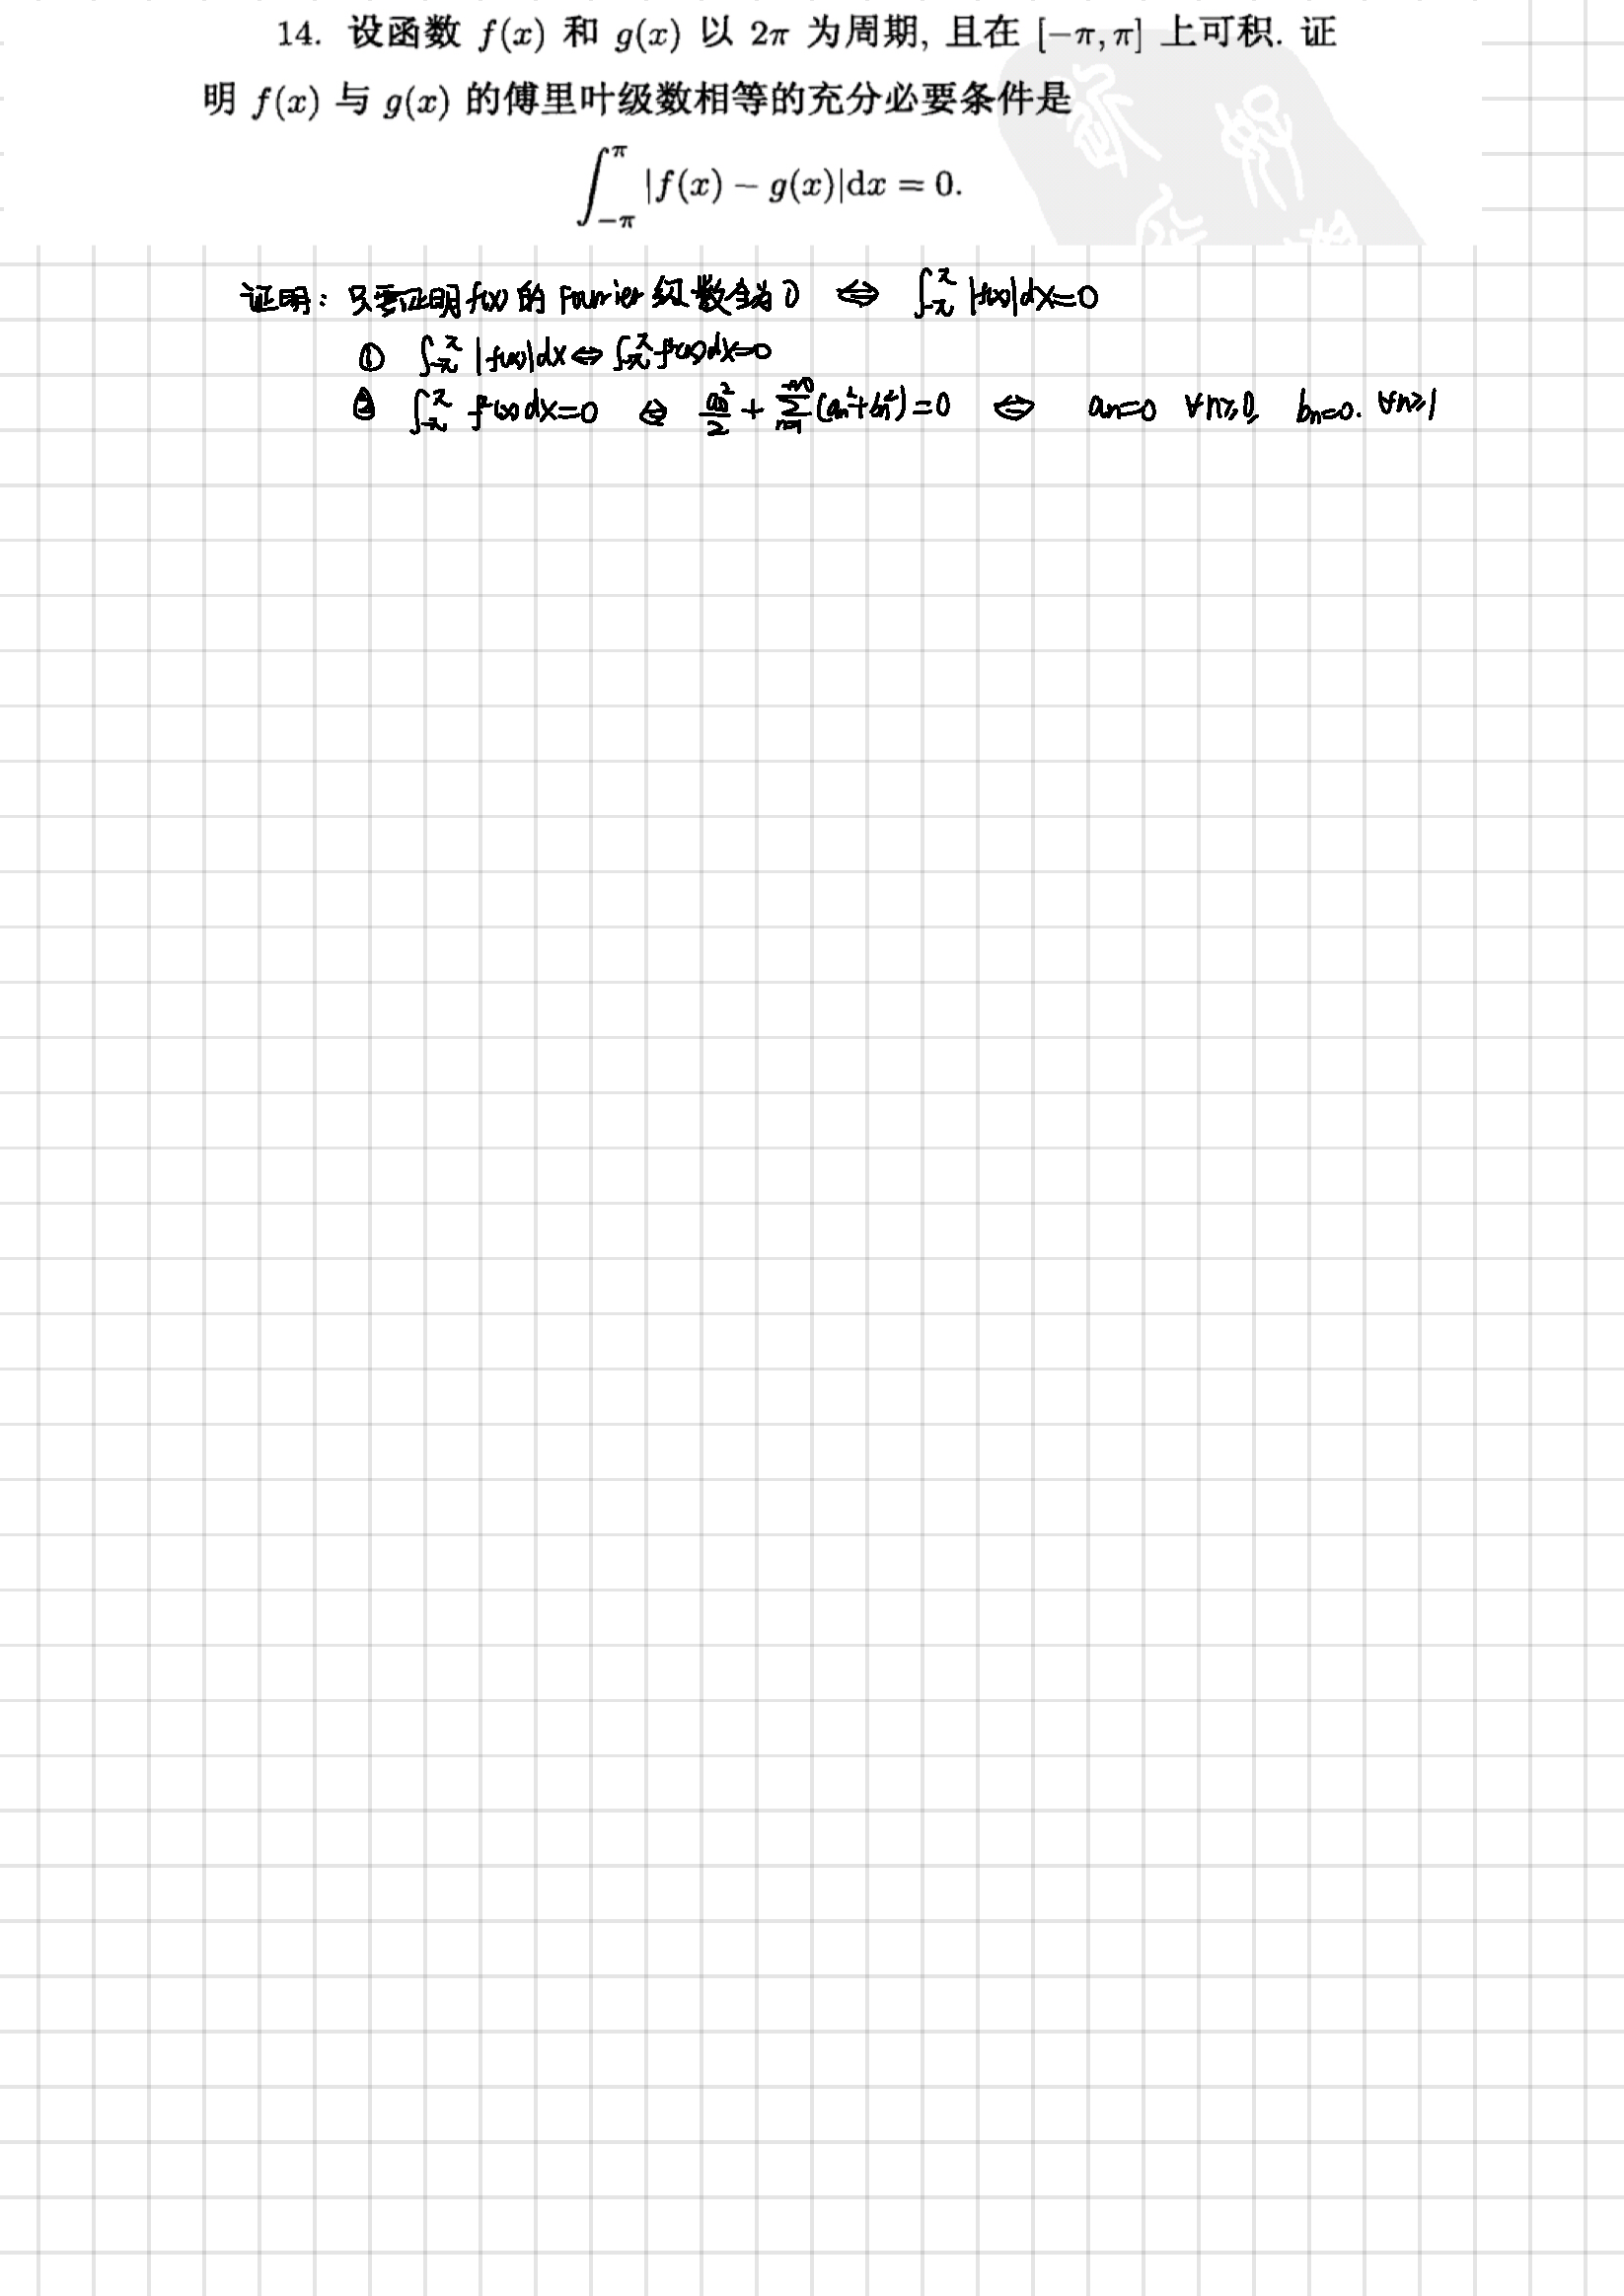 14. 设函数 f(x) 和 g(x) 以 2π 为周期, 且在 [−π, π] 上可积. 证
明 f(x) 与 g(x) 的傅里叶级数相等的充分必要条件是
∫_{−π}^{π} |f(x) − g(x)|dx = 0.
证明: 只要证明 f(x) 的 Fourier 级数全为 0 ⇔ ∫_{-π}^{π} |f(x)|dx=0
① ∫_{-π}^{π} |f(x)|dx ⇔ ∫_{-π}^{π} f²(x)dx=0
② ∫_{-π}^{π} f²(x)dx=0 ⇔ a₀²/2 + ∑_{n=1}^{+∞}(aₙ²+bₙ²)=0 ⇔ aₙ=0 ∀n≥0, bₙ=0. ∀n≥1